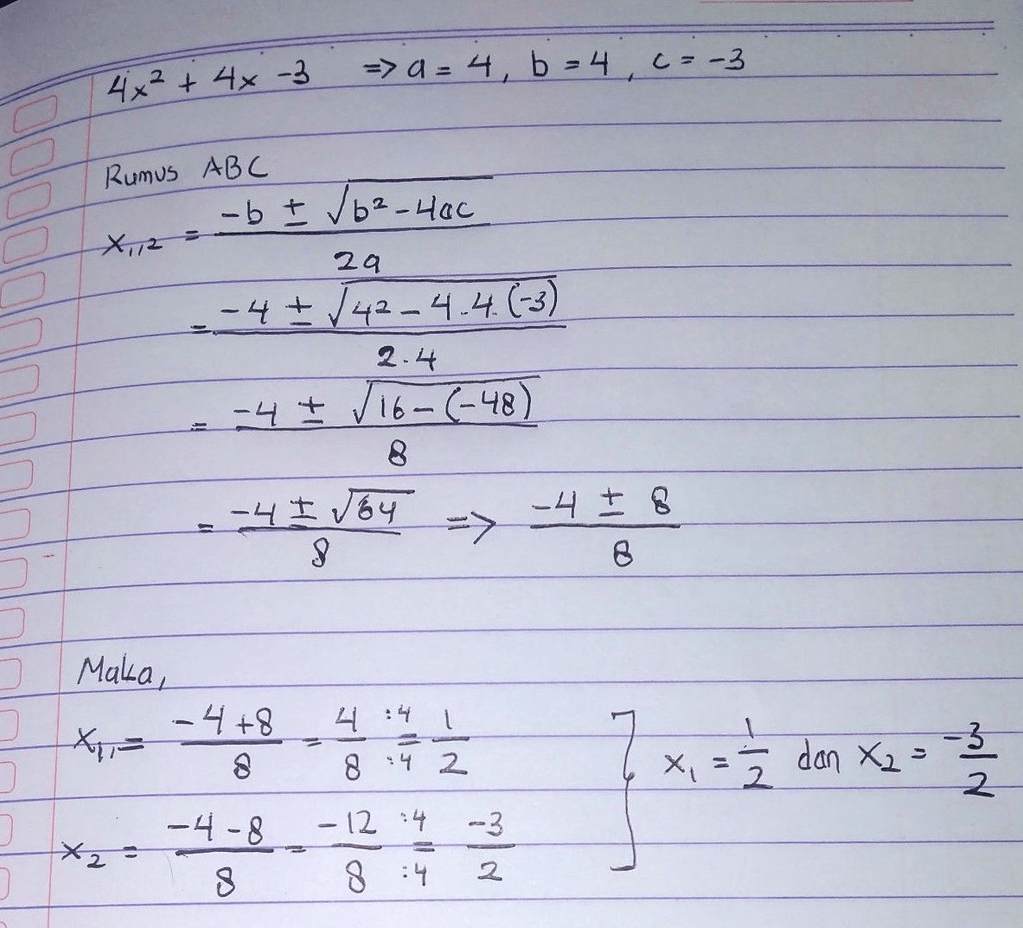 4x² + 4x -3 => a = 4, b = 4, c = -3
Rumus ABC
x₁,₂ = (-b ± √(b² - 4ac)) / 2a
= (-4 ± √(4² - 4.4.(-3))) / 2.4
= (-4 ± √(16 - (-48))) / 8
= (-4 ± √64) / 8 => (-4 ± 8) / 8
Maka,
x₁, = (-4 + 8) / 8 = 4/8 :4/:4 = 1/2
x₂ = (-4 - 8) / 8 = -12/8 :4/:4 = -3/2
] x₁ = 1/2 dan x₂ = -3/2